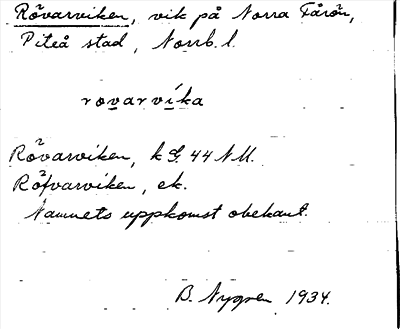 Rövarviken, vik på Norra Fårön,
Piteå stad, Norrb. l.
rovarvika
Rövarviken, k G. 44 NU.
Röfvarviken, ek.
Namnets uppkomst obekant.
B. Nygren 1934.